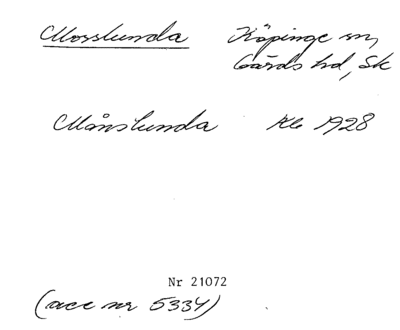 Mosslunda Köpinge sn,
Gärds hd, Sk
Månslunda Kb 1928
Nr 21072
(acc nr 5334)